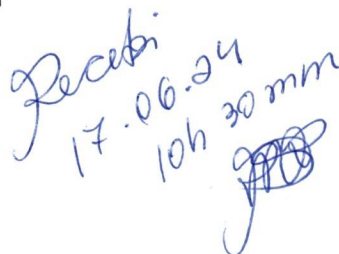 Recebi
17.06.24
10h 30mm